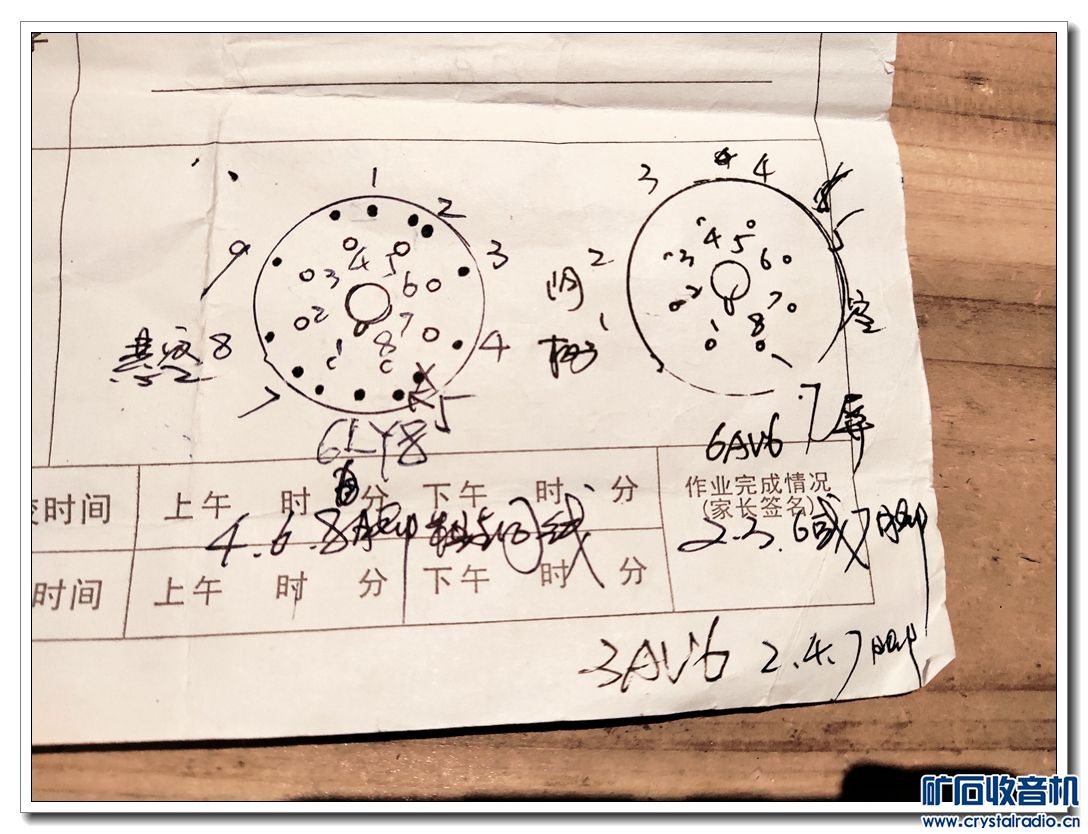 1
2
3
4
5
7
8
9
3 4 5 6
2 7
1 8
6LY8
3 4
2
阴
1
栅
5
空
7 屏
4 5
3 6
2 7
1 8
6AV6
时间 上午 时 分 下午 时 分
作业完成情况
(家长签名)
4.6.8脚
2.3.6或7脚
时间 上午 时 分 下午 时 分
3AV6 2.4.7脚
矿石收音机
www.crystalradio.cn